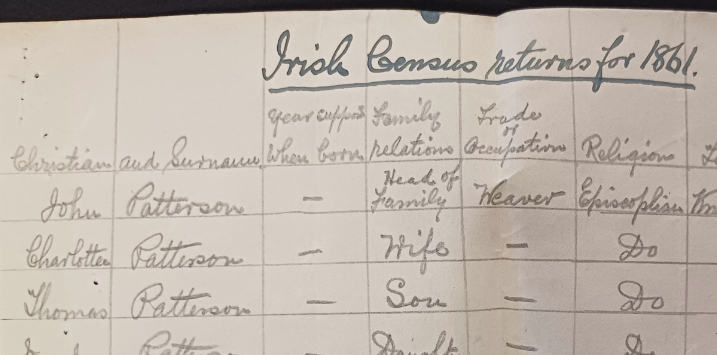 Irish Census returns for 1861.
Christian and Surname year suppos when born Family relations Trade or Occupation Religion
John Patterson — Head of Family Weaver Episcoplian
Charlotte Patterson — Wife — Do
Thomas Patterson — Son — Do